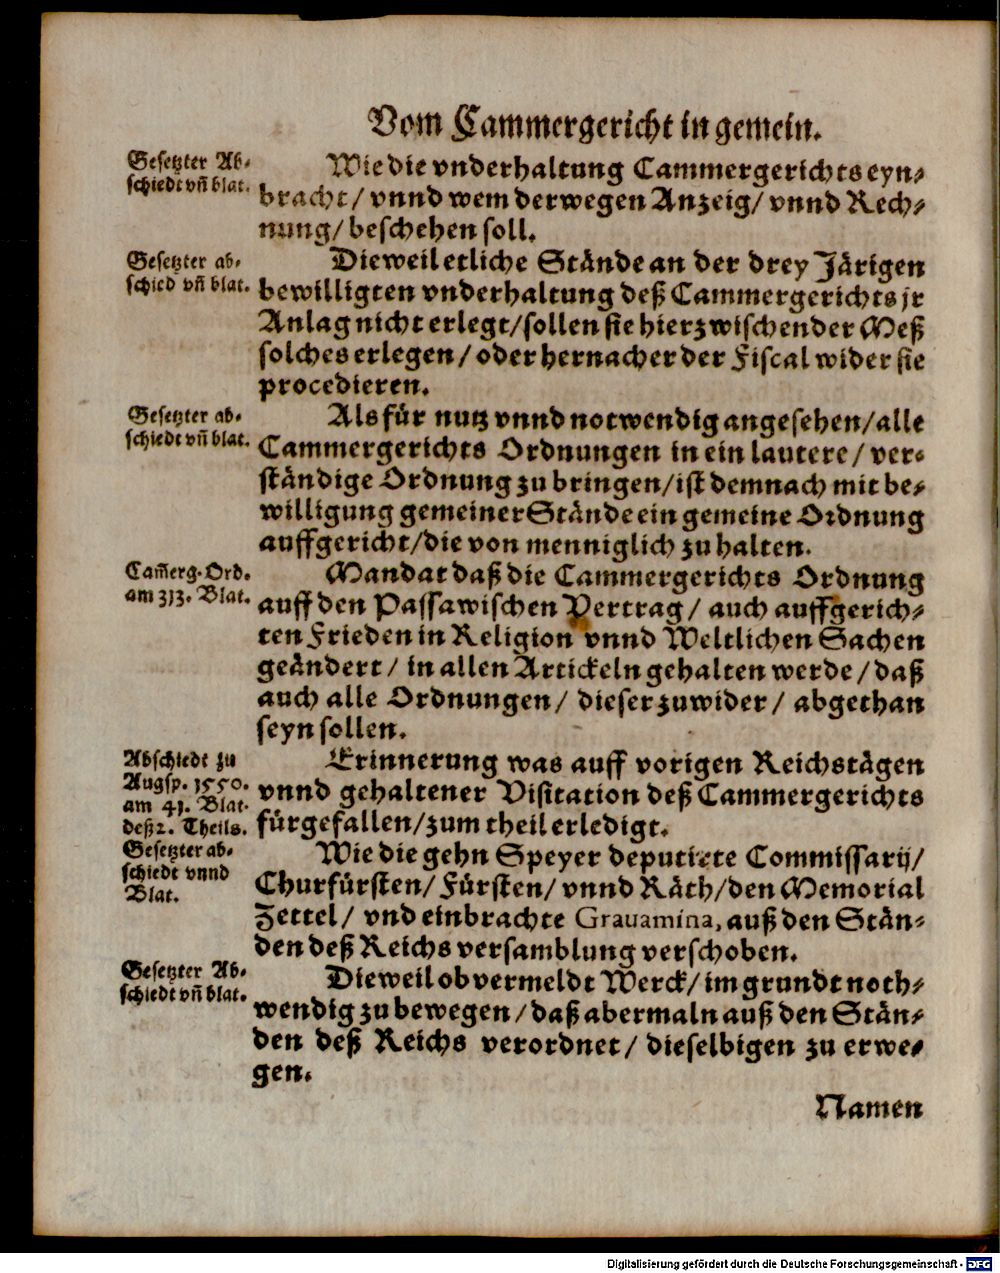 Vom Cammergericht in gemein.
Gesetzter Ab-
schiedt vñ blat.
Wie die vnderhaltung Cammergerichts eyn-
bracht / vnnd wem derwegen Anzeig / vnnd Rech-
nung / beschehen soll.
Gesetzter ab-
schied vñ blat.
Dieweil etliche Stände an der drey Järigen
bewilligten vnderhaltung deß Cammergerichts jr
Anlag nicht erlegt / sollen sie hierzwischen der Meß
solches erlegen / oder hernacher der Fiscal wider sie
procedieren.
Gesetzter ab-
schiedt vñ blat.
Als für nutz vnnd notwendig angesehen / alle
Cammergerichts Ordnungen in ein lautere / ver-
ständige Ordnung zu bringen / ist demnach mit be-
willigung gemeiner Stände ein gemeine Ordnung
auffgericht / die von menniglich zu halten.
Cam̃erg. Ord.
am 313. Blat.
Mandat daß die Cammergerichts Ordnung
auff den Passawischen Vertrag / auch auffgerich-
ten Frieden in Religion vnnd Weltlichen Sachen
geändert / in allen Artickeln gehalten werde / daß
auch alle Ordnungen / dieser zuwider / abgethan
seyn sollen.
Abschiedt zu
Augsp. 1550.
am 41. Blat.
deß 2. Theils.
Erinnerung was auff vorigen Reichstägen
vnnd gehaltener Visitation deß Cammergerichts
fürgefallen / zum theil erledigt.
Gesetzter ab-
schiedt vnnd
Blat.
Wie die gehn Speyer deputirte Commissarij /
Churfürsten / Fürsten / vnnd Räth / den Memorial
Zettel / vnd einbrachte Grauamina, auß den Stän-
den deß Reichs versamblung verschoben.
Gesetzter Ab-
schiedt vñ blat.
Dieweil ob vermeldt Werck / im grundt noth-
wendig zu bewegen / daß abermaln auß den Stän-
den deß Reichs verordnet / dieselbigen zu erwe-
gen.
Namen
Digitalisierung gefördert durch die Deutsche Forschungsgemeinschaft - DFG